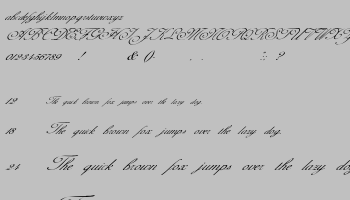 abcdefghijklmnopqrstuvwxyz
ABCDEFGHIJKLMNOPQRSTUVWXYZ
0123456789 ! & () . . : ; ?
12 The quick brown fox jumps over the lazy dog.
18 The quick brown fox jumps over the lazy dog.
24 The quick brown fox jumps over the lazy dog